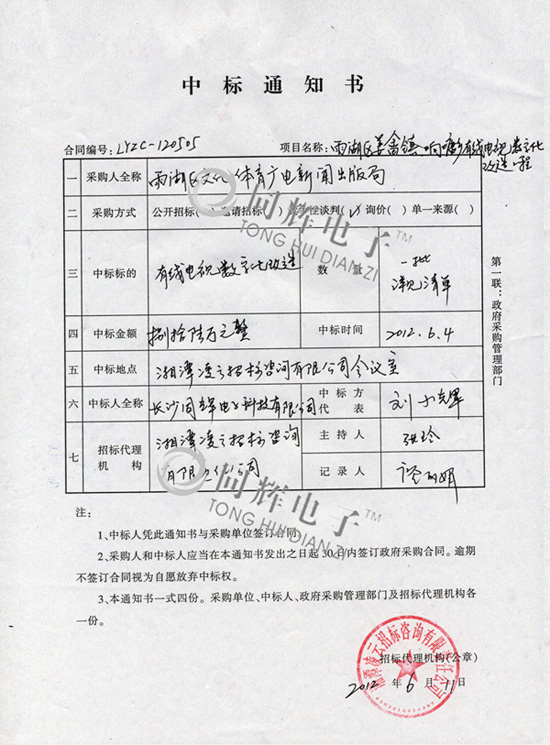 中标通知书
合同编号：LYZC-120505
项目名称：雨湖区姜畲镇响塘乡有线电视数字化
改造工程
一 采购人全称 雨湖区文化体育广电新闻出版局
二 采购方式 公开招标( ) 邀请招标( ) 竞争性谈判(√) 询价( ) 单一来源( )
三 中标标的 有线电视数字化改造 数量 一批
详见清单
四 中标金额 捌拾陆万元整 中标时间 2012.6.4
五 中标地点 湘潭凌云招标咨询有限公司会议室
六 中标人全称 长沙同辉电子科技有限公司 中标方
代表 刘光辉
七 招标代理
机构 湘潭凌云招标咨询
有限责任公司
主持人 张玲
记录人
第一联：政府采购管理部门
注：
1、中标人凭此通知书与采购单位签订合同。
2、采购人和中标人应当在本通知书发出之日起30日内签订政府采购合同。逾期
不签订合同视为自愿放弃中标权。
3、本通知书一式四份。采购单位、中标人、政府采购管理部门及招标代理机构各
一份。
湘潭凌云招标咨询有限责任公司
招标代理机构(公章)
2012 年 6 月 11 日
同辉电子™
TONG HUI DIAN ZI
同辉电子™
TONG HUI DIAN ZI